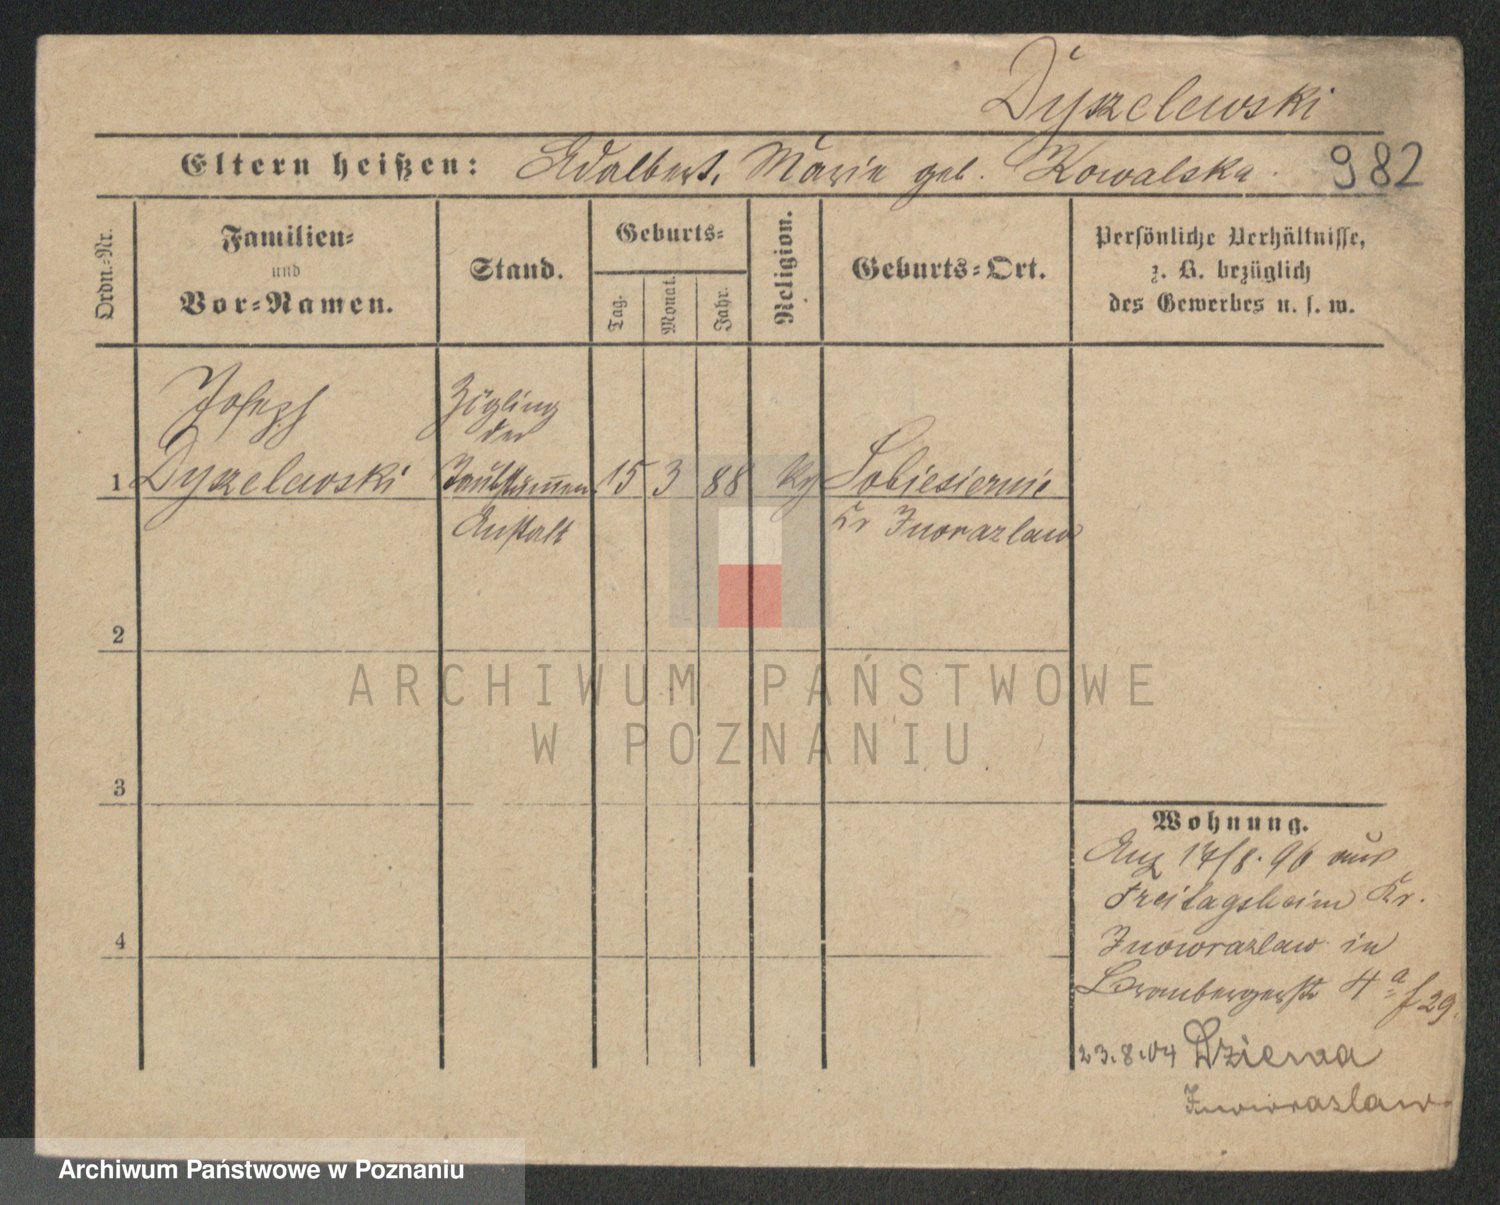 Dyszelewski
Eltern heißen: Adalbert, Marie geb. Kowalska.
982
Ordn.=Nr.
Familien=
und
Vor=Namen.
Stand.
Geburts=
Tag.
Monat.
Jahr.
Religion.
Geburts=Ort.
Persönliche Verhältnisse,
z. B. bezüglich
des Gewerbes u. s. w.
Joseph
Zögling
der
1 Dyszelewski Taubstummen 15 3 88 Sobiesiernie
Anstalt Kr Inowrazlaw
ARCHIWUM PAŃSTWOWE
W POZNANIU
2
3
4
Wohnung.
Anz 14/8. 96 aus
Freitagsheim Kr.
Inowrazlaw in
Brombergerstr 4a f 29.
23.8.04 Dziewa
Inowrazlaw
Archiwum Państwowe w Poznaniu